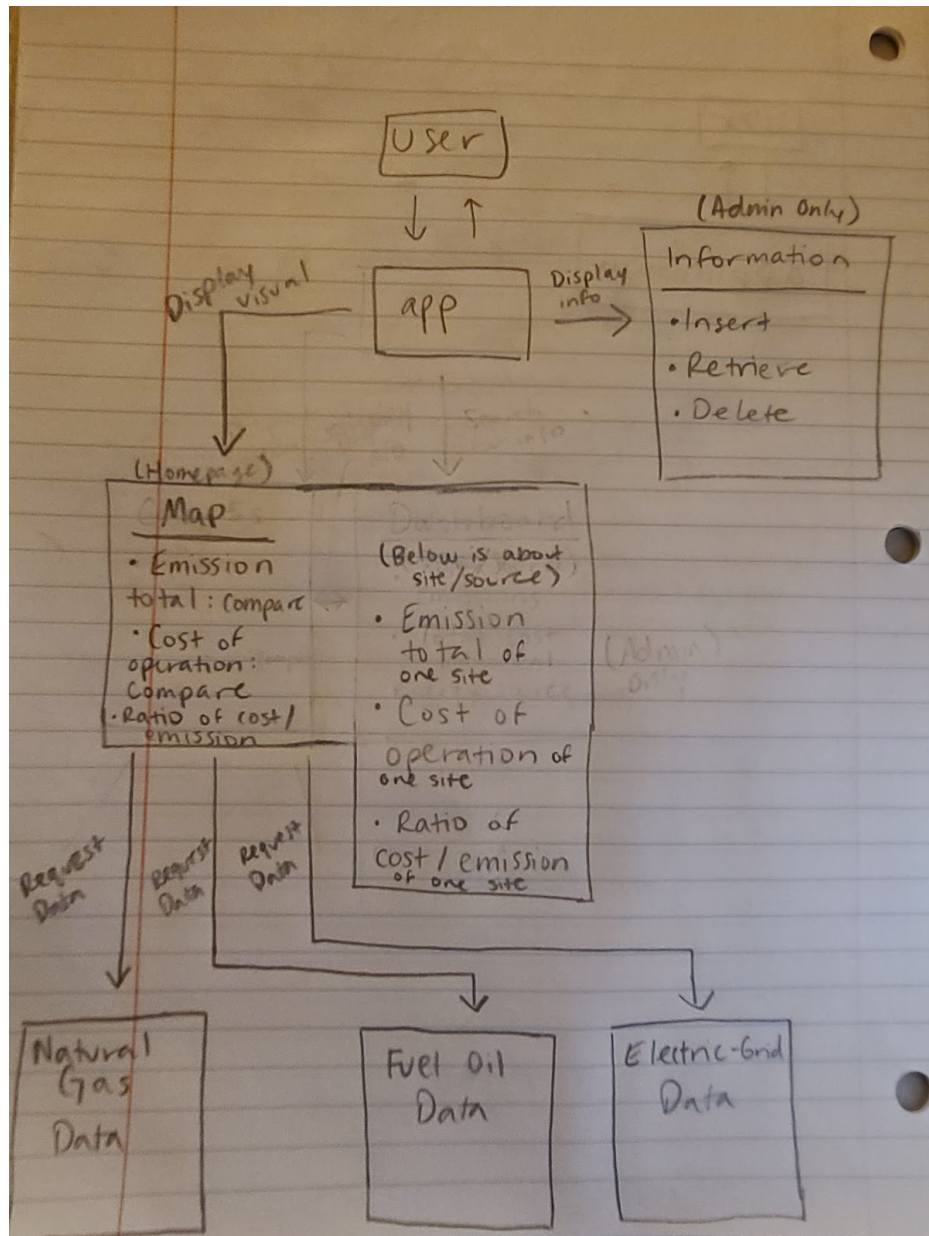 User
(Admin Only)
Information
• Insert
• Retrieve
• Delete
Display
visual
app
Display
info
(Homepage)
Map
• Emission
total: compare
• Cost of
operation:
Compare
• Ratio of cost/
emission
Dashboard
(Below is about
site/source)
• Emission
total of
one site
• Cost of
operation of
one site
• Ratio of
cost / emission
of one site
(Admin
Only)
Request
Data
Request
Data
Request
Data
Natural
Gas
Data
Fuel Oil
Data
Electric-Grid
Data